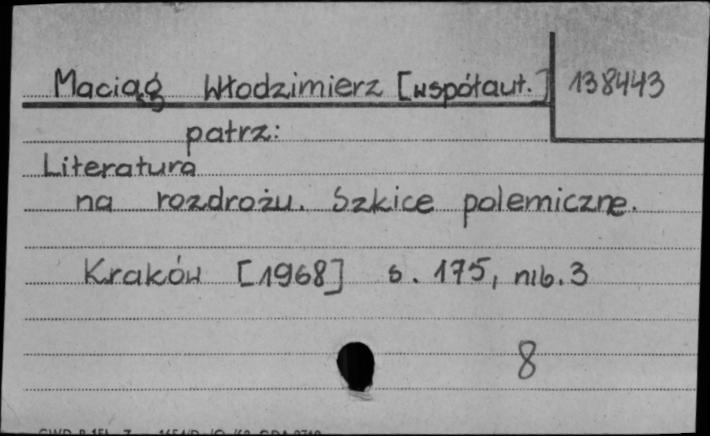 Maciąg Włodzimierz [współaut.] 138443
patrz:
Literatura
na rozdrożu. Szkice polemiczne.
Kraków [1968] s. 175, nlb. 3
8